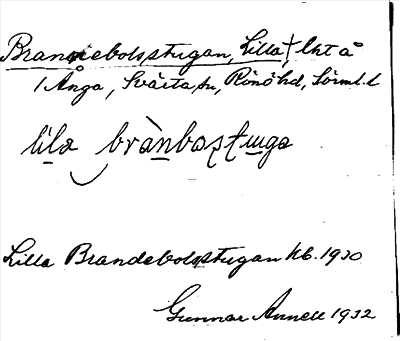 Brandebolsstugan, Lilla † lht å
/ Ånga, Svärta sn, Rönö hd, Sörml. l
lila brànbostuga
Lilla Brandebolsstugan kb. 1930
Gunnar Annell 1932